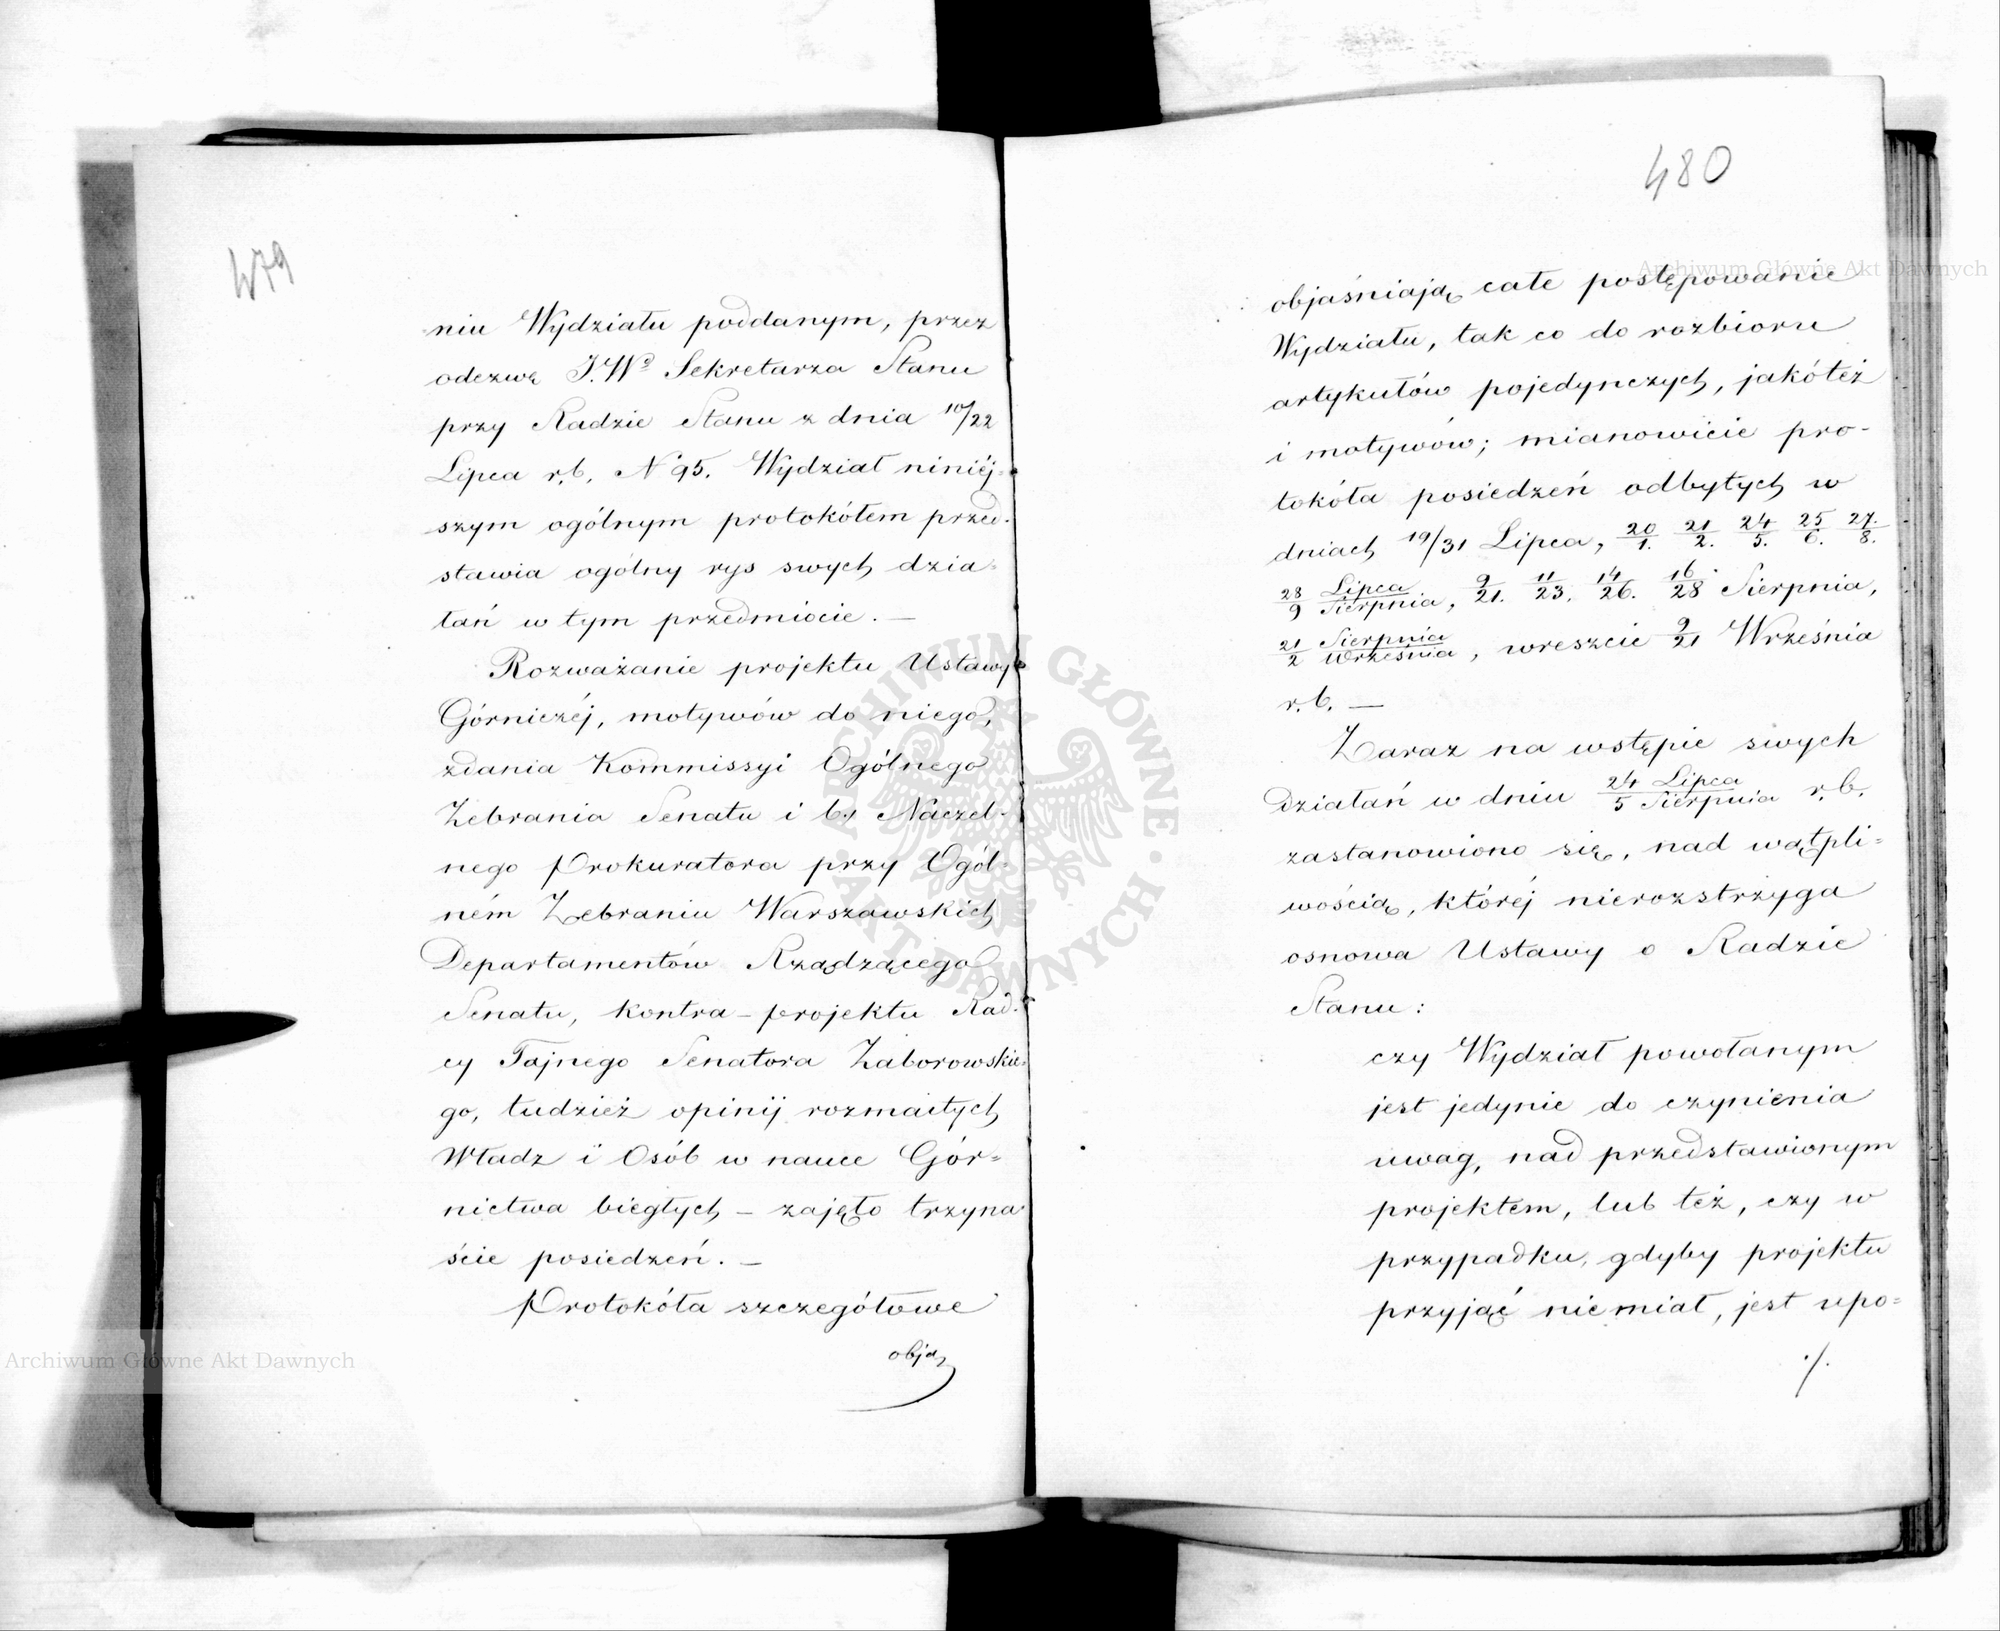 479
niu Wydziału poddanym, przez
odezwę J.Wº Sekretarza Stanu
przy Radzie Stanu z dnia 10/22
Lipca r.b. Nº 95. Wydział niniéj=
szym ogólnym protokółem przed=
stawia ogólny rys swych dzia=
łań w tym przedmiocie. —
Rozważanie projektu Ustawy
Górniczéj, motywów do niego,
zdania Kommissyi Ogólnego
Zebrania Senatu i b. Naczel=
nego Prokuratora przy Ogól=
ném Zebraniu Warszawskich
Departamentów Rządzącego
Senatu, kontra-projektu Rad=
cy Tajnego Senatora Zaborowskie=
go, tudzież opinij rozmaitych
Władz i Osób w nauce Gór=
nictwa biegłych — zajęło trzyna
ście posiedzeń. —
Protokóła szczegółowe
obja
480
objaśniają całe postępowanie
Wydziału, tak co do rozbioru
artykułów pojedynczych, jakóteż
i motywów; mianowicie pro-
tokóła posiedzeń odbytych w
dniach 19/31 Lipca, 20/1. 21/2. 24/5. 25/6. 27/8.
28/9 Lipca/Sierpnia, 9/21. 11/23. 14/26. 16/28 Sierpnia,
21/2 Sierpnia/Września, wreszcie 9/21 Września
r.b. —
Zaraz na wstępie swych
działań w dniu 24/5 Lipca/Sierpnia r.b.
zastanowiono się, nad wątpli=
wością, której nierozstrzyga
osnowa Ustawy o Radzie
Stanu:
czy Wydział powołanym
jest jedynie do czynienia
uwag, nad przedstawionym
projektem, lub też, czy w
przypadku, gdyby projektu
przyjąć niemiał, jest upo=
./.
Archiwum Główne Akt Dawnych
Archiwum Główne Akt Dawnych
ARCHIWUM GŁÓWNE · AKT DAWNYCH ·